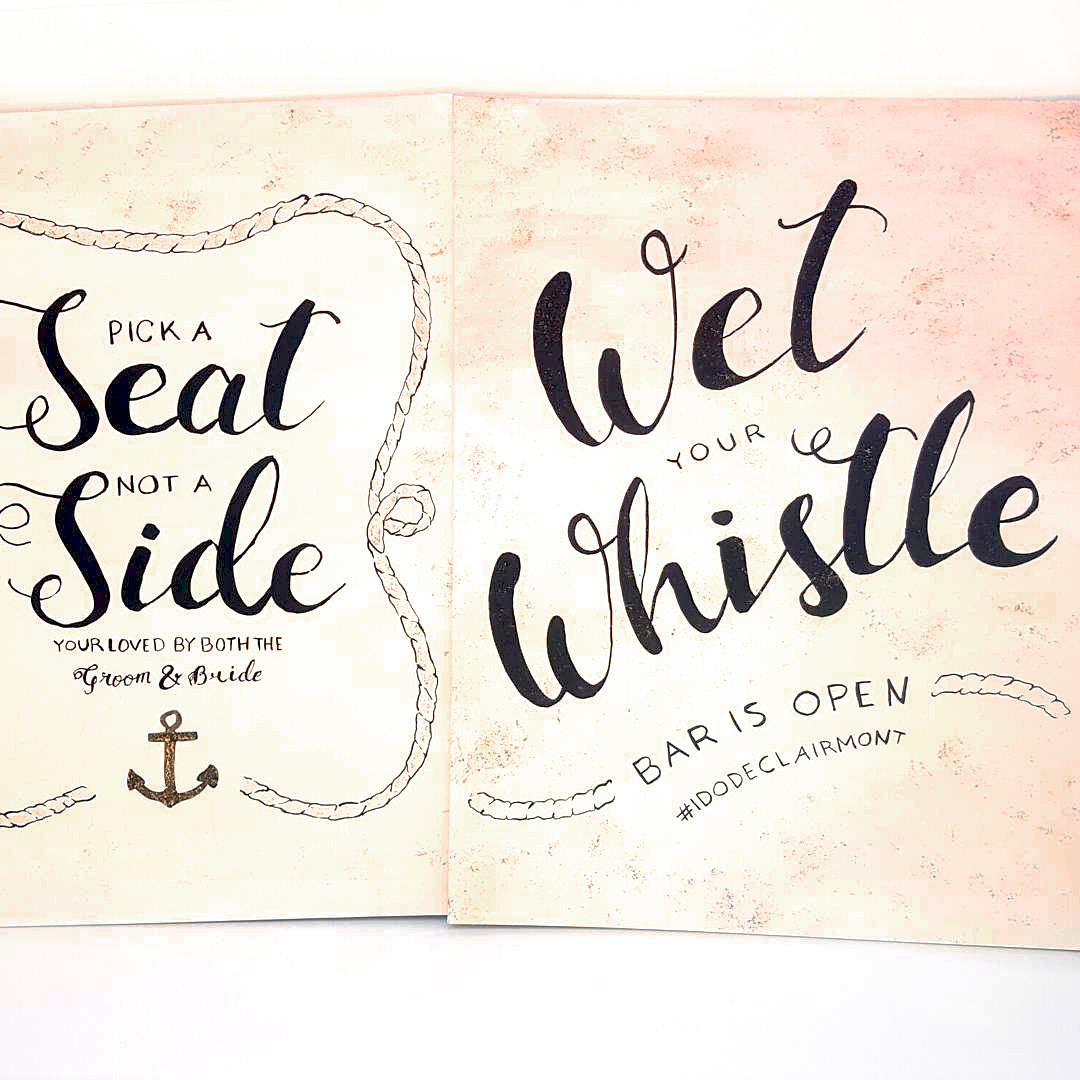 PICK A
Seat
NOT A
Side
YOUR LOVED BY BOTH THE
Groom & Bride
Wet
YOUR
Whistle
BAR IS OPEN
#IDODECLAIRMONT